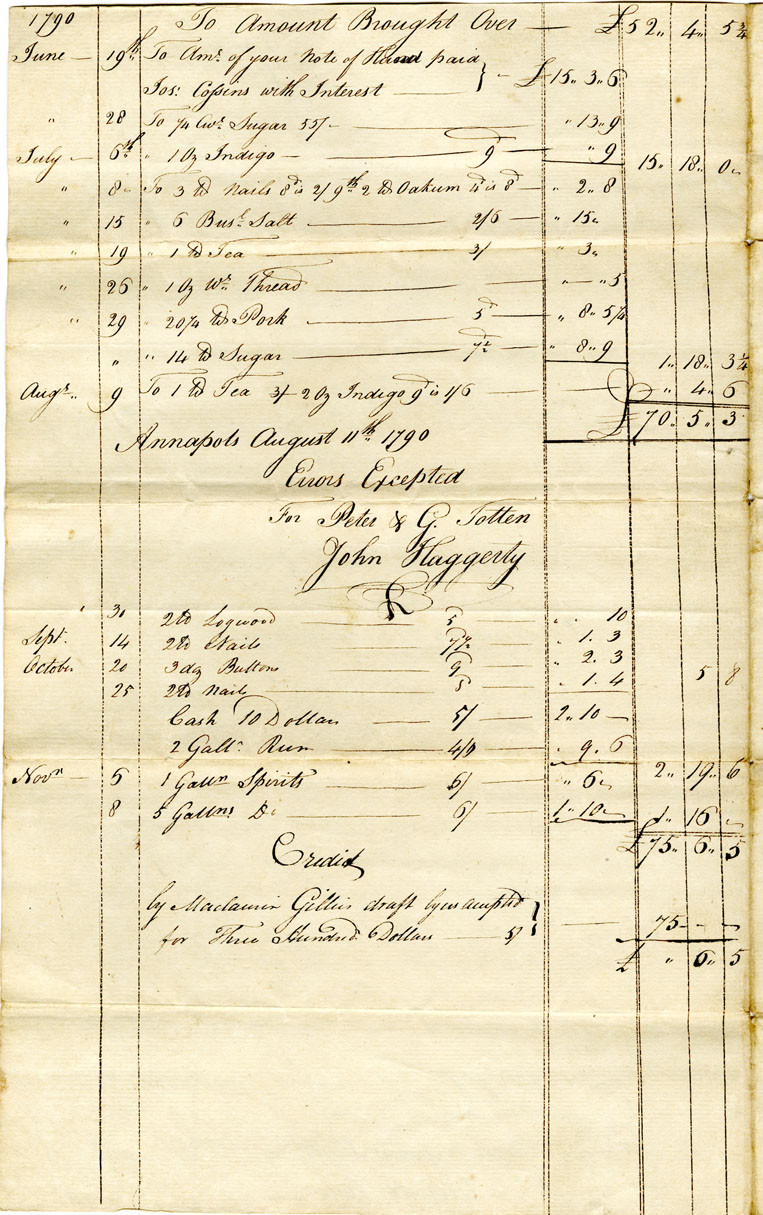 1790 To Amount Brought Over — £52 „ 4 „ 5 3/4
June — 19th To Amt of your Note of Hand paid
Jos: Cossins with Interest — } — £15 „ 3 „ 6
„ 28 To 1/4 Cwt Sugar 55/ — „ 13 „ 9
July — 6th „ 1 Oz Indigo — 9d — „ 9 15 „ 18 „ 0
„ 8 To 3 lb Nails 8d is 2/ 9th 2 lb Oakum 4d is 8d — „ 2 „ 8
„ 15 „ 6 Bush Salt — 2/6 — „ 15 „
„ 19 „ 1 lb Tea — 3/ „ 3 „
„ 26 „ 1 Oz Wt Thread — „ — „ 5
„ 29 „ 20 1/4 lb Pork — 5d — „ 8 „ 5 1/4
„ „ 14 lb Sugar — 7 1/2 — „ 8 „ 9 1 „ 18 „ 3 1/4
Augt „ 9 To 1 lb Tea 3/ 2 Oz Indigo 9d is 1/6 — „ 4 „ 6
£70 „ 5 „ 3
Annapols August 11th 1790
Errors Excepted
For Peter & G. Totten
John Haggerty
30 2 lb Logwood — 5 — „ . 10
Sept. 14 2 lb Nails — 7 1/2 — „ 1 . 3
October 20 3 dz Buttons — 9 — „ 2 . 3 5 8
25 2 lb Nails — „ 1 . 4
Cash 10 Dollars — 5/ — 2 „ 10 —
2 Galls Rum — 4/9 — „ 9 . 6 2 „ 19 „ 6
Novr — 5 1 Galln Spirits — 6/ — „ 6 „
8 5 Gallns Do — 6/ — 1 „ 10 „ 1 „ 16 „
£75 „ 6 „ 5
Credit
by Maclaurin Gillis draft by us accepted
for Three Hundred Dollars — 5/ } — 75 — „ —
£ „ 6 „ 5